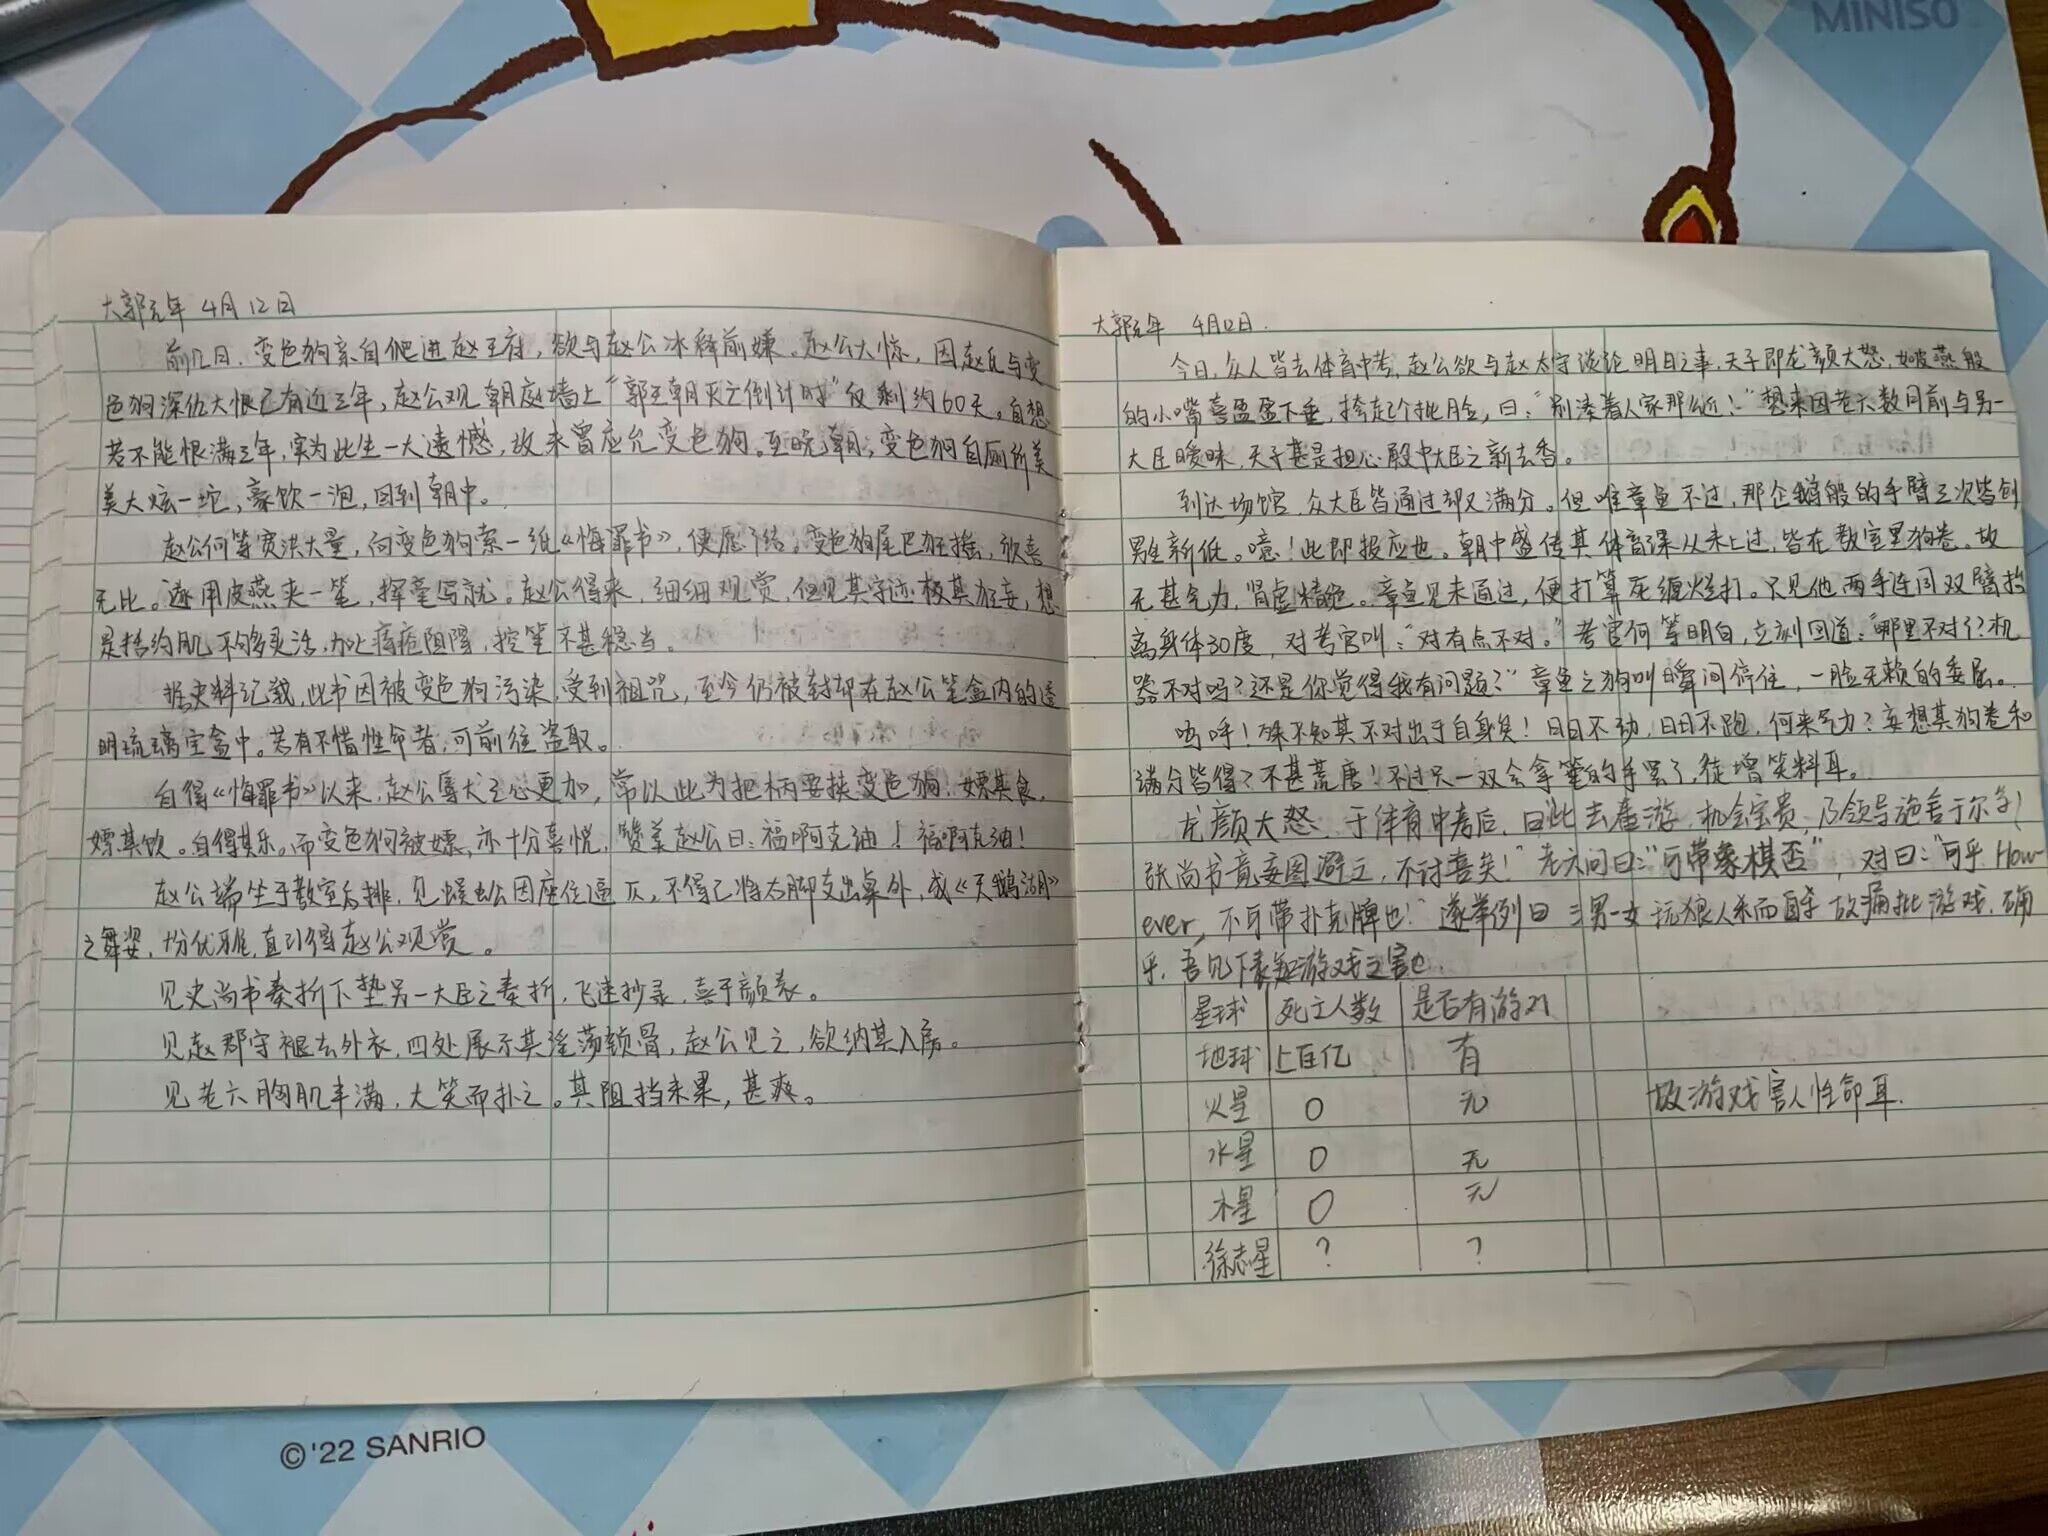 MINISO
大郭元年 4月12日
前几日,变色狗亲自爬进赵王府,欲与赵公冰释前嫌。赵公大惊,因赵氏与变
色狗深仇大恨已有近三年,赵公观朝庭墙上“郭王朝灭亡倒计时”仅剩约60天。自想
若不能恨满三年,实为此生一大遗憾,故未曾应允变色狗。至晚朝,变色狗自厕所美
美大炫一坨,豪饮一泡,回到朝中。
赵公何等宽洪大量,向变色狗索一纸《悔罪书》,便愿了结。变色狗尾巴狂摇,欣喜
无比。遂用皮燕夹一笔,挥毫写就。赵公得来,细细观赏,但见其字迹极其狂妄,想
是括约肌不够灵活,加上痔疮阻障,控笔不甚稳当。
据史料记载,此书因被变色狗污染,受到祖咒,至今仍被封印在赵公笔盒内的透
明琉璃宝盒中。若有不惜性命者,可前往盗取。
自得《悔罪书》以来,赵公辱犬之心更加,常以此为把柄要挟变色狗,嫖其食,
嫖其饮。自得其乐。而变色狗被嫖,亦十分喜悦,赞美赵公曰:福啊克油!福啊克油!
赵公端坐于教室后排,见蜈蚣公因座位逼仄,不得已将右脚支出桌外,成《天鹅湖》
之舞姿,十分优雅,直引得赵公观赏。
见史尚书奏折下垫另一大臣之奏折,飞速抄录,喜于颜表。
见赵郡守褪去外衣,四处展示其淫荡锁骨,赵公见之,欲纳其入房。
见老六胸肌丰满,大笑而扑之。其阻挡未果,甚爽。
大郭元年 4月12日.
今日,众人皆去体育中考,赵公欲与赵太守谈论明日之事,天子即龙颜大怒,如皮燕般
的小嘴喜盈盈下垂,挎起个批脸,曰:“别凑着人家那么近!”想来因老六数月前与另一
大臣暧昧,天子甚是担心殿中大臣之新去香。
到达场馆,众大臣皆通过却又满分。但唯章鱼不过,那企鹅般的手臂三次皆创
男生新低。噫!此即报应也。朝中盛传其体育课从未上过,皆在教室里狗卷。故
无甚气力,肾虚精绝。章鱼见未通过,便打算死缠烂打。只见他两手连同双臂抬
离身体30度,对考官叫:“对有点不对。”考官何等明白,立刻回道:“哪里不对了?机
器不对吗?还是你觉得我有问题?”章鱼之狗叫瞬间停住,一脸无赖的委屈。
呜呼!殊不知其不对出于自身矣!日日不动,日日不跑,何来气力?妄想其狗卷和
满分皆得?不甚荒唐!不过只一双会拿笔的手罢了,徒增笑料耳。
龙颜大怒,于体育中考后,曰此去春游,机会宝贵,乃领导施舍于尔等!
张尚书竟妄图避之,不讨喜矣!”老六问曰:“可带象棋否”,对曰:“可乎 How-
ever,不可带扑克牌也!”遂举例曰 三男一女玩狼人杀而自杀 故漏批游戏,确
乎,吾见下表知游戏之害也.
星球 死亡人数 是否有游戏
地球 上百亿 有
火星 0 无
故游戏害人性命耳.
水星 0 无
木星 0 无
徐志星 ? ?
©'22 SANRIO